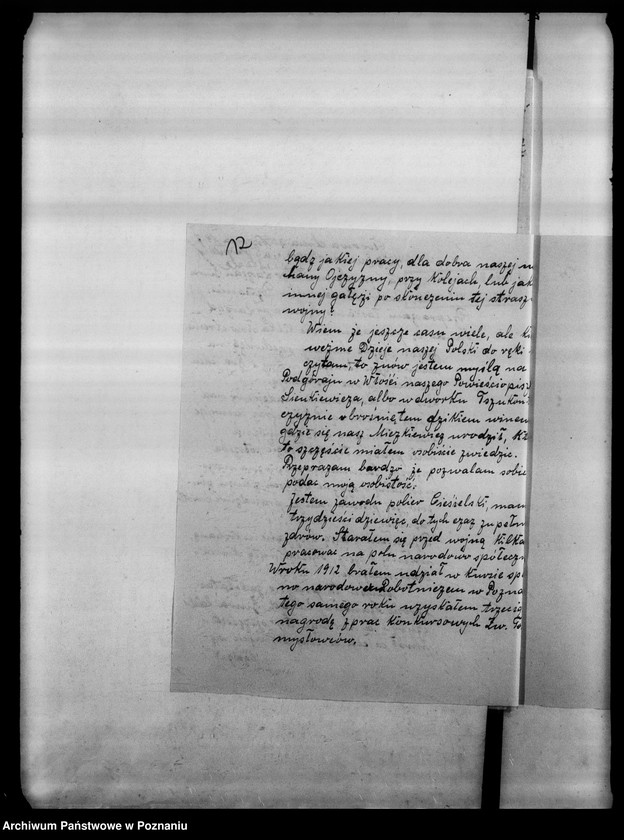 12
bądź jakiej pracy, dla dobra naszej
Ojczyzny, przy Kolejach, lub jak
innej gałęzi po skończeniu tej strasz
wojny?
Wiem że jeszcze casu wiele, ale
wezmę Dzieje naszej Polski do ręki
czytam, to znów jestem myślą na
Podgóraju w Włości naszego Powieściopisa
Sienkiewicza, albo w dworku
czyznie obrośniętem dzikiem winem
gdzie się nasz Mickiewicz urodził,
to szczęście miałem osobiście zwiedzic.
Przepraszam bardzo że pozwalam sobie
podać moją osobistość:
Jestem zawodu polier Ciesielski, mam
trzydzieści dziewięc, do tych czaz zupełn
zdrów. Starałem się przed wojną kilka
pracować na polu narodowo społeczn
W roku 1912 brałem udział w kursie spo
no narodowem Robotniczem w Pozna
tego samego roku uzyskałem trzecią
nagrodę z prac Konkursowych Tow. To
mysłowców.
Archiwum Państwowe w Poznaniu